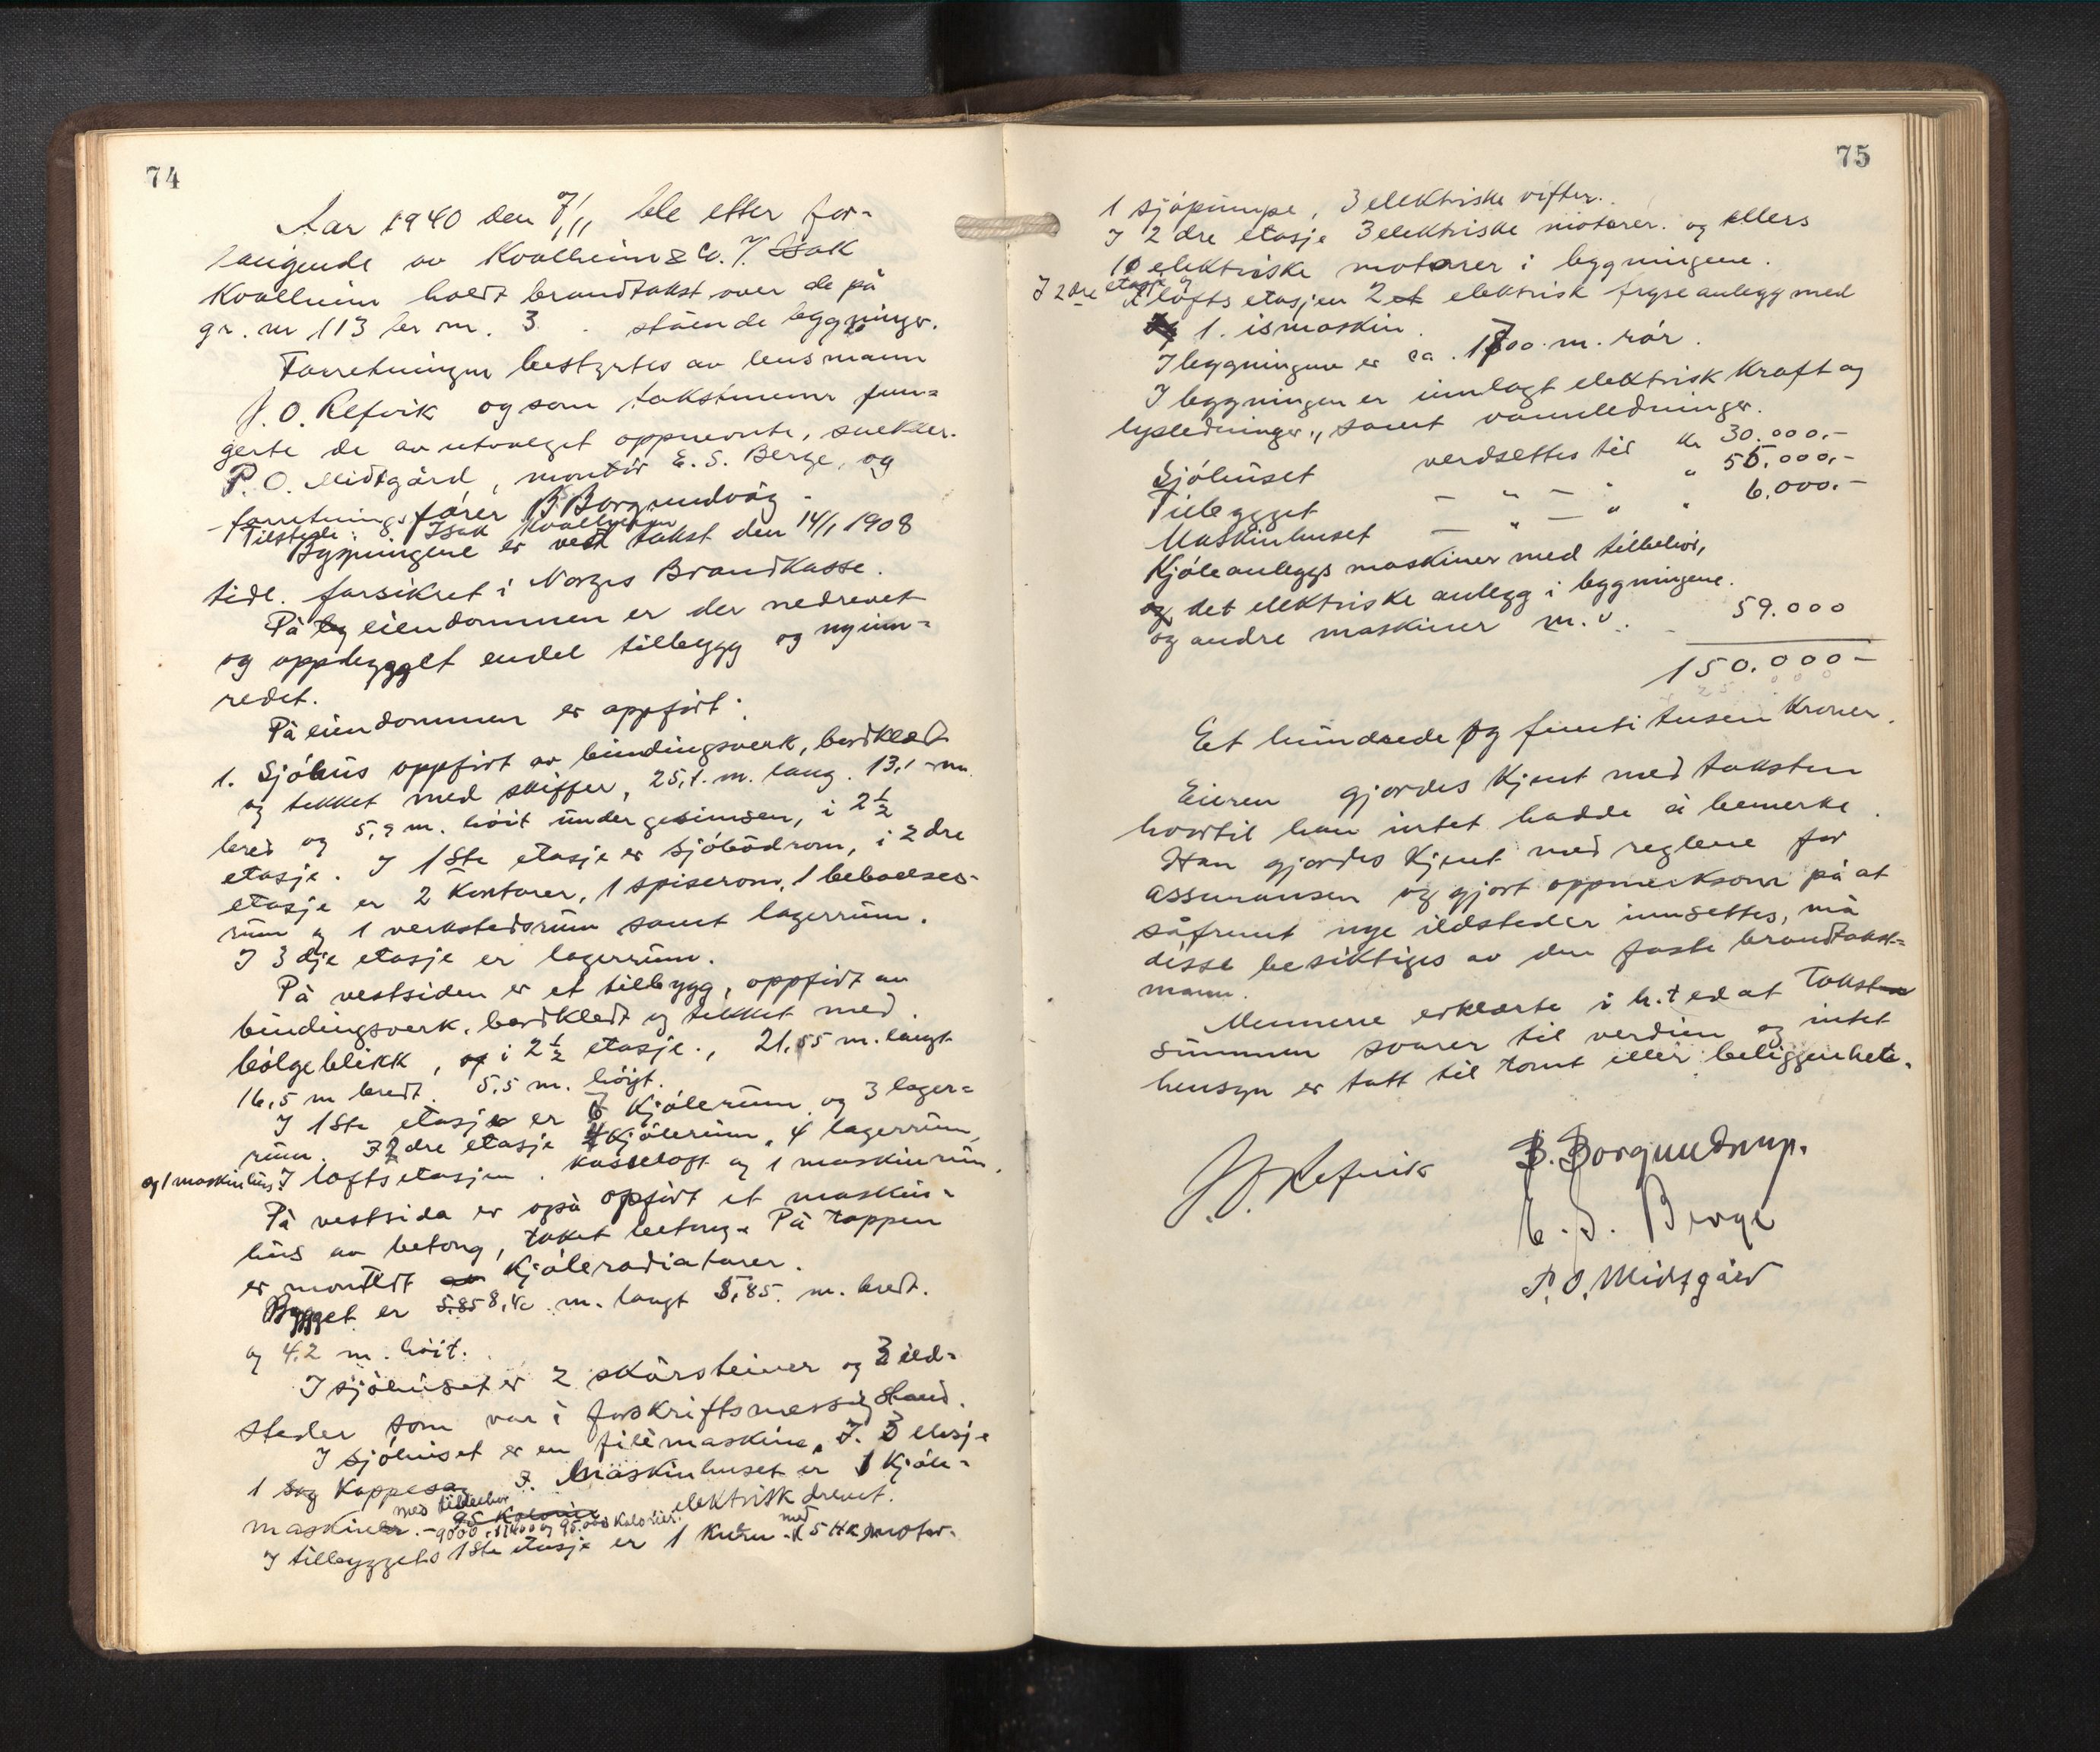 74
Aar 1940 den 7/11 ble etter for-
langende av Kvalheim & Co. V. Isak
Kvalheim holdt brandtakst over de på
gr. nr 113 br nr. 3 stående bygninger.
Forretningen bestyrtes av lensmann
J. O. Refvik og som takstmenn fun-
gerte de av utvalget oppnevnte, snekker
P. O. Midtgård, montør E. S. Berge, og
forretningsfører B. Borgundvåg -
Tilstede: Isak Kvalheim
Bygningene er ved takst den 14/1 1908
tidl. forsikret i Norges Brandkasse.
På by eiendommen er der nedrevet
og oppbygget endel tilbygg og nyinn-
redet.
På eiendommen er oppført:
1. Sjöhus oppfört av bindingsverk, bordkledt
og tekket med skiffer, 25,1. m. lang. 13,1 m.
bred og 5,9 m. höit under gesimsen, i 2½
etasje. I 1ste etasje er sjöbodrom, i 2dre
etasje er 2 kontorer, 1 spiserom, 1 beboelses-
rum og 1 verkstedsrum samt lagerrum.
I 3dje etasje er lagerrum.
På vestsiden er et tilbygg, oppfört av
bindingsverk, bordkledt og tekket med
bölgeblikk, og i 2½ etasje., 21,55 m. langt
16,5 m bredt. 5,5 m. höyt.
I 1ste etasje er 6 kjölerum og 3 lager-
rum. I 2dre etasje 4 kjölerum, 4 lagerrum
og 1 maskinhus I loftsetasjen. kasseloft og 1 maskinrum.
På vestsida er også opfört et maskin-
hus av betong, taket betong. På toppen
er montert av kjöleradiatorer.
Bygget er 5.85 8,40 m. langt 5,85. m. bredt.
og 4.2 m. höit.
I sjöhuset er 2 skårsteiner og 3 ild-
steder som var i forskriftsmessig stand.
I sjöhuset er en filemaskine, I. 3 etasje
1 sag Kappesag I. Maskinhuset er 1 kjöle-
med tilbehör 95 Kalorier
maskiner. - 9000, 17400 og 95.000 Kalorier. elektrisk drevet.
I tilbyggets 1ste etasje er 1 kvern med 5 HK motor.
75
1 sjöpumpe, 3 elektriske vifter.
I 2dre etasje 3 elektriske motorer. og ellers
10 elektriske motorer i bygningene.
I 2dre etasje og I loftsetasjen 2 et elektrisk fryseanlegg med
og 1. ismaskin.
I bygningene er ca. 1700 m. rör.
I bygningen er innlagt elektrisk kraft og
lysledninger, samt vannledninger.
Sjöhuset verdsettes til kr 30.000.-
Tilbygget — " — " " 55.000.-
Maskinhuset — " — " " 6.000.-
Kjöleanleggs maskiner med tilbehör,
og det elektriske anlegg i bygningene.
og andre maskiner m.v. 59.000
150.000-
Et hundrede og femti tusen Kroner.
Eieren gjordes kjent med taksten
hvortil han intet hadde å bemerke.
Han gjordes kjent med reglene for
assuransen og gjort oppmerksom på at
såfremt nye ildsteder innsettes, må
disse besiktiges av den faste brandtakst-
mann.
Mennene erklærte i h.t ed at takst
summen svarer til verdien og intet
hensyn er tatt til tomt eller beliggenhet.
J. O. Refvik
B. Borgundvåg.
E. S. Berge
P. O. Midtgård